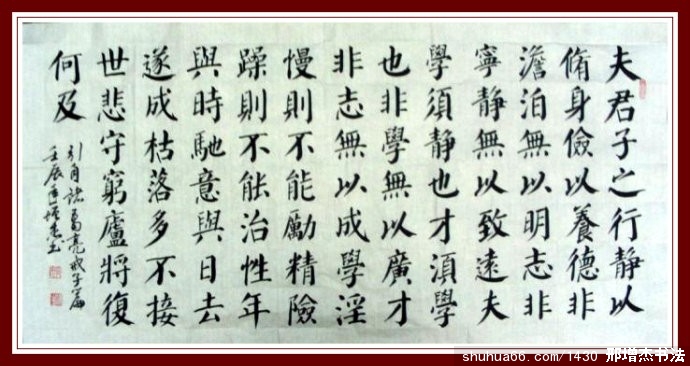 夫君子之行静以
脩身儉以養德非
澹泊無以明志非
寧静無以致遠夫
學須静也才湏學
也非學無以廣才
非志無以成學淫
慢則不能勵精險
躁則不能治性年
與時馳意與日去
遂成枯落多不接
世悲守窮廬將復
何及
引自諸葛亮戒子篇
壬辰年增杰书
shuhua66.com/1430 邢增杰书法